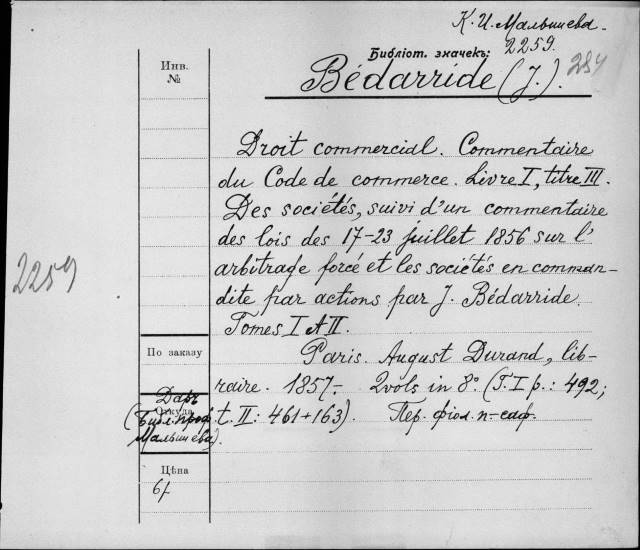 К. И. Малышева.
2259.
Библіот. значекъ:
284
Bédarride (J.).
Инв.
№
Droit commercial. Commentaire
du Code de commerce. Livre I, titre III.
Des sociétés, suivi d'un commentaire
des lois des 17-23 juillet 1856 sur l'
arbitrage forcé et les sociétés en comman-
dite par actions par J. Bédarride.
Tomes I et II.
2259
По заказу
Paris. August Durand, lib-
raire. 1857.- 2 vols in 8°. (T. I p.: 492;
t. II: 461+163). Пер. фіол. п-саф.
Даръ
Откуда
(Библ. проф.
Малышева).
Цѣна
6 f